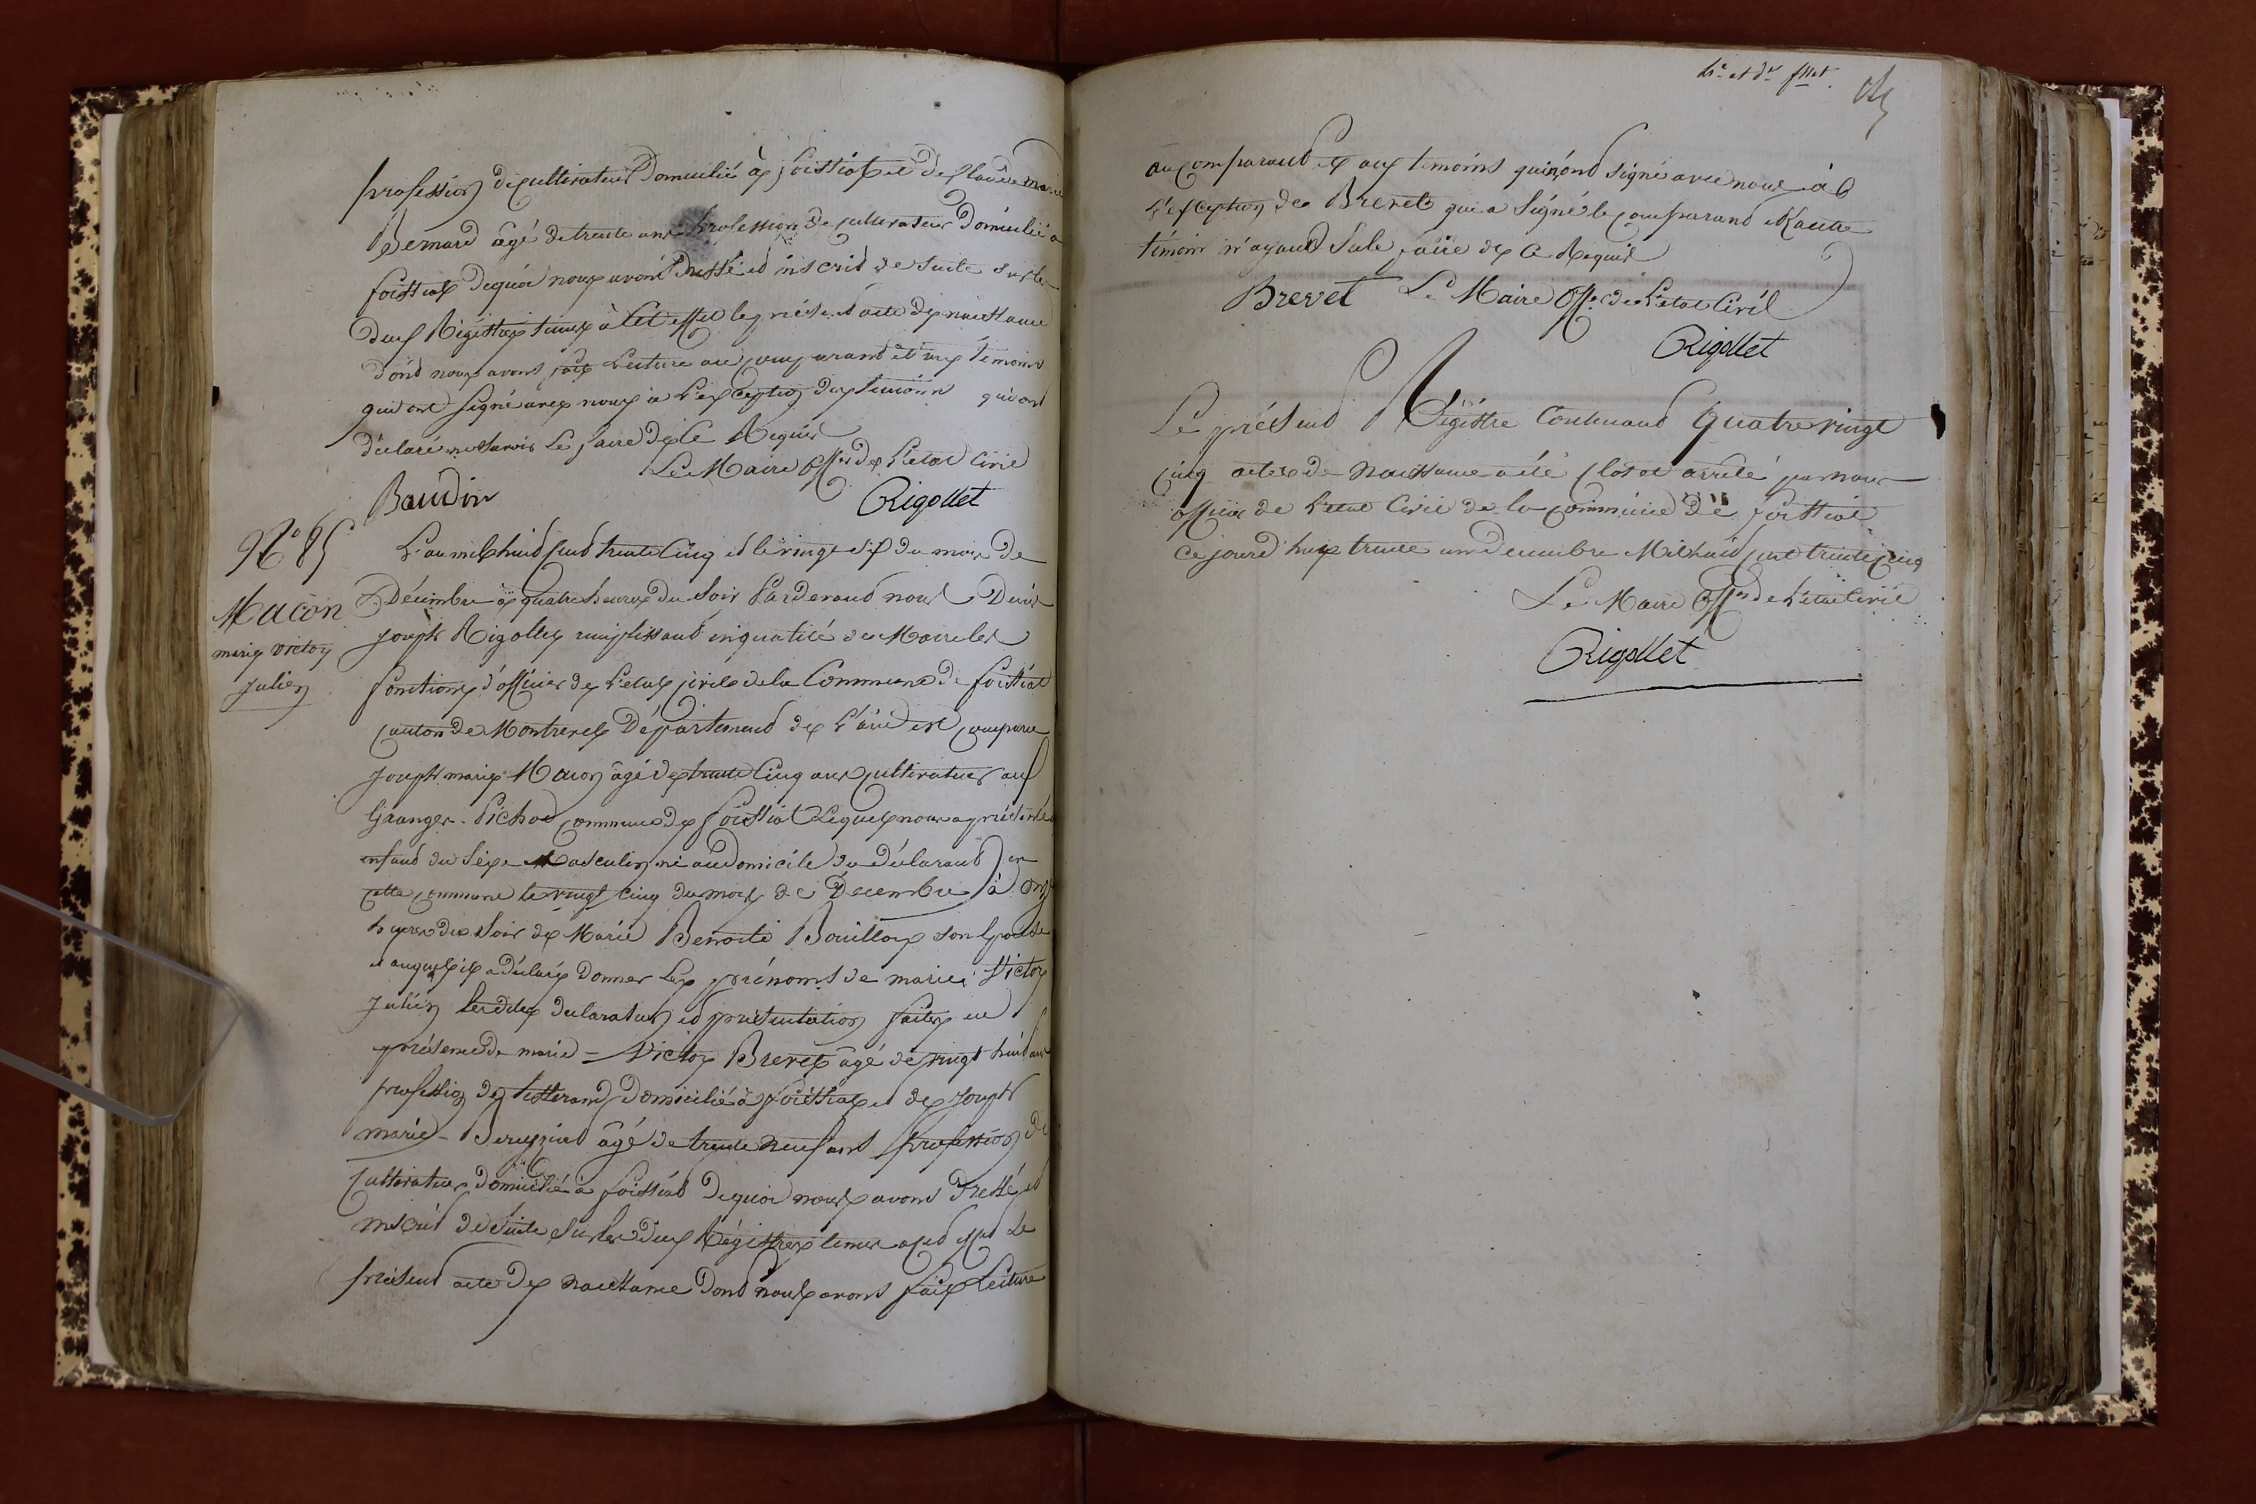 profession de cultivateur Domicilié à foissiat et de Claude marie
Bernard âgé de trente ans profession de cultivateur Domicilié a
foissiat de quoi nous avons dressé et inscrit de suite sur les
deux Régistres tenus à cet effet le présent acte de naissance
dond nous avons fait Lecture au comparant et aux témoins
qui ont signé avec nous à L'exception des témoins qui ont
déclaré ne savoir le faire de ce Requis
Le Maire Offer de L'etat Civil
Baudin
Rigollet
N° 85
Macon
marie victor
Julien
L'an mil huid cend trente Cinq et le vingt six du mois de
Décembre à quatre heures du Soir Pardevand nous Denis
Joseph Rigollet remplissand en qualité de Maire les
fonctions d'officier de L'etat civil de la Commune de foissiat
canton de Montrevel Départemend de L'ain est comparu
Joseph marie Macon âgé de trente Cinq ans cultivateur aux
Granges Pichod commune de foissiat Lequel nous a présenté
enfand du Sexe Masculin né au domicile du déclarand en
cette commune le vingt cinq du mois de Décembre à onze
heures du Soir de Marie Benoite Bouilloux son Epouse
et auquel il a déclaré Donner les prénoms de marie Victor
Julien lesdites déclaration et présentation faites en
présence de marie = Victor Brevet âgé de vingt huit ans
profession de tisserand domicilié à foissiat et de Joseph
marie - âgé de trente neuf ans profession de
Cultivateur domicilié à foissiat De quoi nous avons Dressé et
inscrit de Suite Sur les deux Régistres tenus a cet effet Le
présent acte de naissance Dond nous avons fait Lecture
au comparand et aux témoins qui n'ond signé avec nous à
L'exception de Brevet qui a Signé le comparand et l'autre
témoin n'ayand Sule faire de ce Requis
Brevet Le Maire Off. de L'etat Civil
Rigollet
Le présend Régistre Contenand Quatre vingt
Cinq actes de Naissance a été Clos et arreté par nous
officier de L'etat Civil de la commune de foissiat
Ce jourd'huy trente un décembre Mil huid cent trente cinq
Le Maire Offer de L'etat Civil
Rigollet